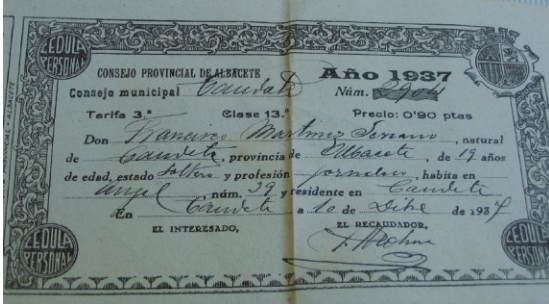 CEDULA PERSONAL
CONSEJO PROVINCIAL DE ALBACETE Año 1937
Consejo municipal Caudete Núm. 2904
Tarifa 3.ª Clase 13.ª Precio: 0'90 ptas
Don Francisco Martinez Serrano, natural
de Caudete, provincia de Albacete, de 19 años
de edad, estado soltero y profesión jornalero, habita en
Angel, núm. 39 y residente en Caudete
En Caudete a 10 de Dibre de 1937
EL INTERESADO, EL RECAUDADOR,
CEDULA PERSONAL
CEDULA PERSONAL